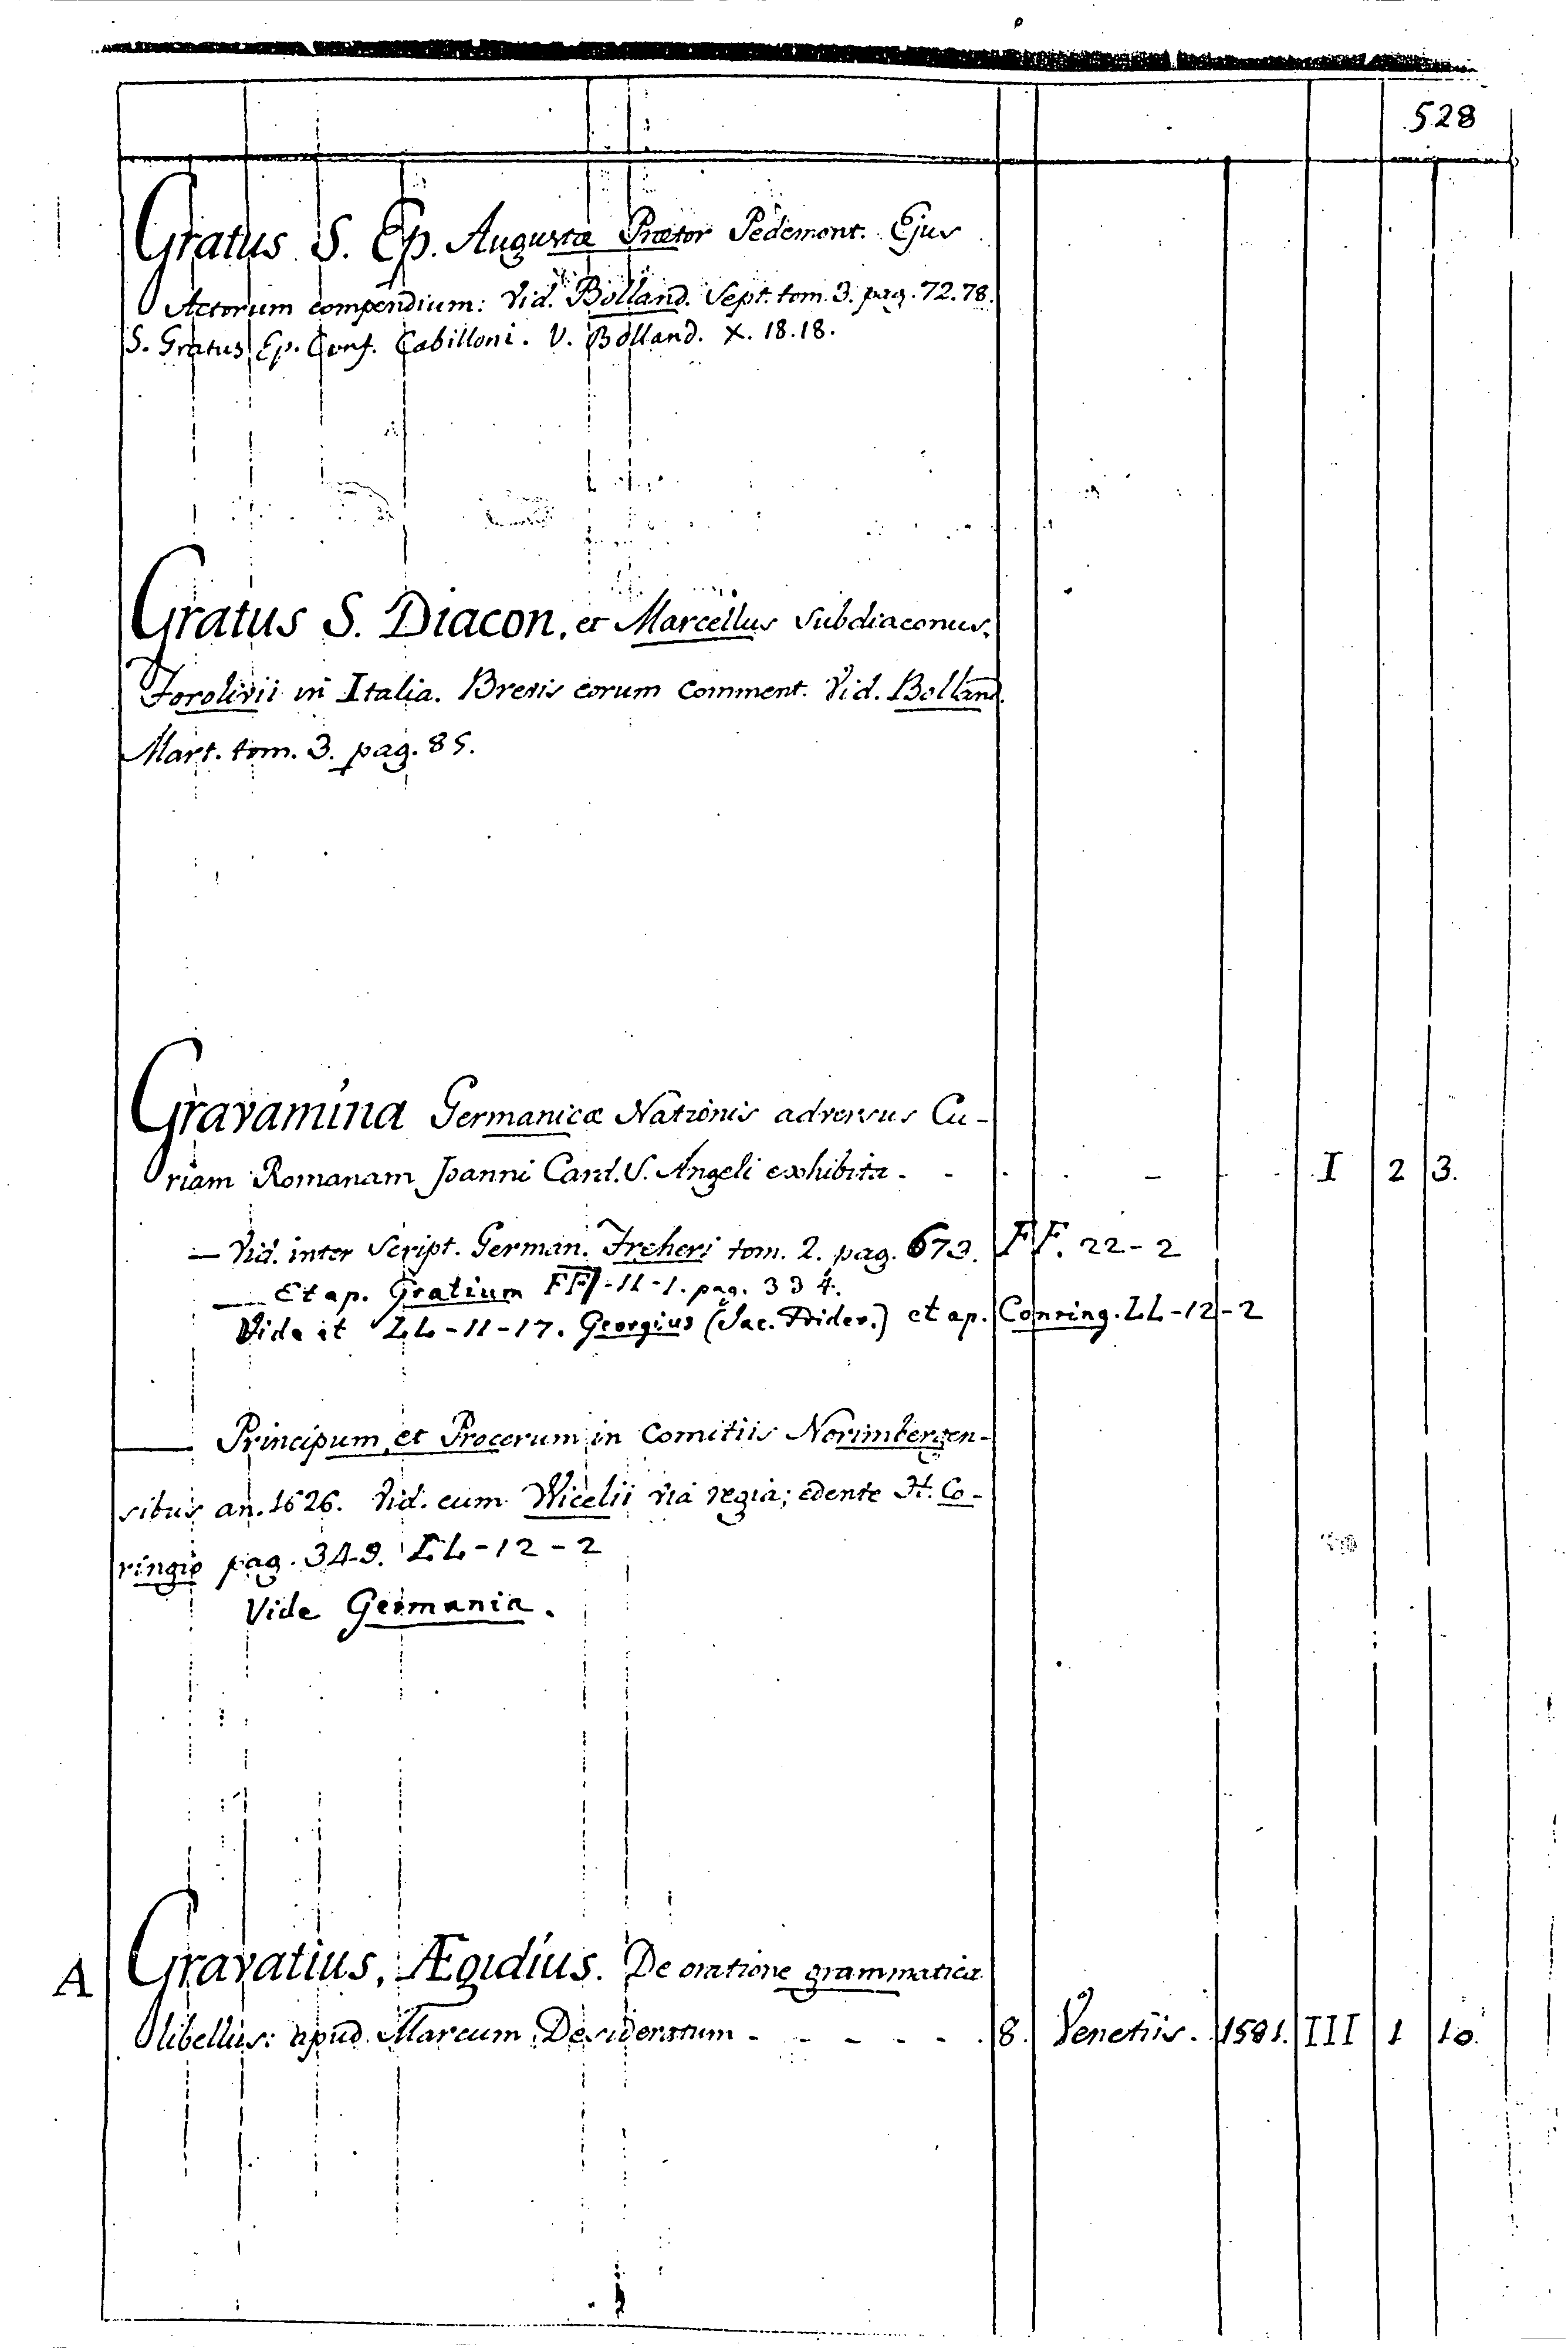 528
Gratus S. Ep. Augustæ Prætor Pedemont. Ejus
Actorum compendium: Vid. Bolland. Sept. tom. 3. pag. 72. 78.
S. Gratus Ep. Conf. Cabilloni. V. Bolland. X. 18. 18.
Gratus S. Diacon. et Marcellus Subdiaconus,
Forolivii in Italia. Brevis eorum comment. Vid. Bolland.
Mart. tom. 3. pag. 85.
Gravamina Germanicæ Nationis adversus Cu-
riam Romanam Joanni Card. S. Angeli exhibita - - - I 2 3.
— Vid. inter Script. German. Freheri tom. 2. pag. 673. FF. 22-2
— Et ap. Gratium FF-11-1. pag. 334.
Vide et LL-11-17. Georgius (Jac. Frider.) et ap. Conring. LL-12-2
— Principum et Procerum in Comitiis Norimbergen-
sibus an. 1626. Vid. cum Wicelii via regia; edente H. Co-
ringio pag. 349. LL-12-2
Vide Germania.
A Gravatius, Ægidius. De oratione grammatica
libellus: apud Marcum Desideratum - - - - - 8. Venetiis. 1581. III 1 10.